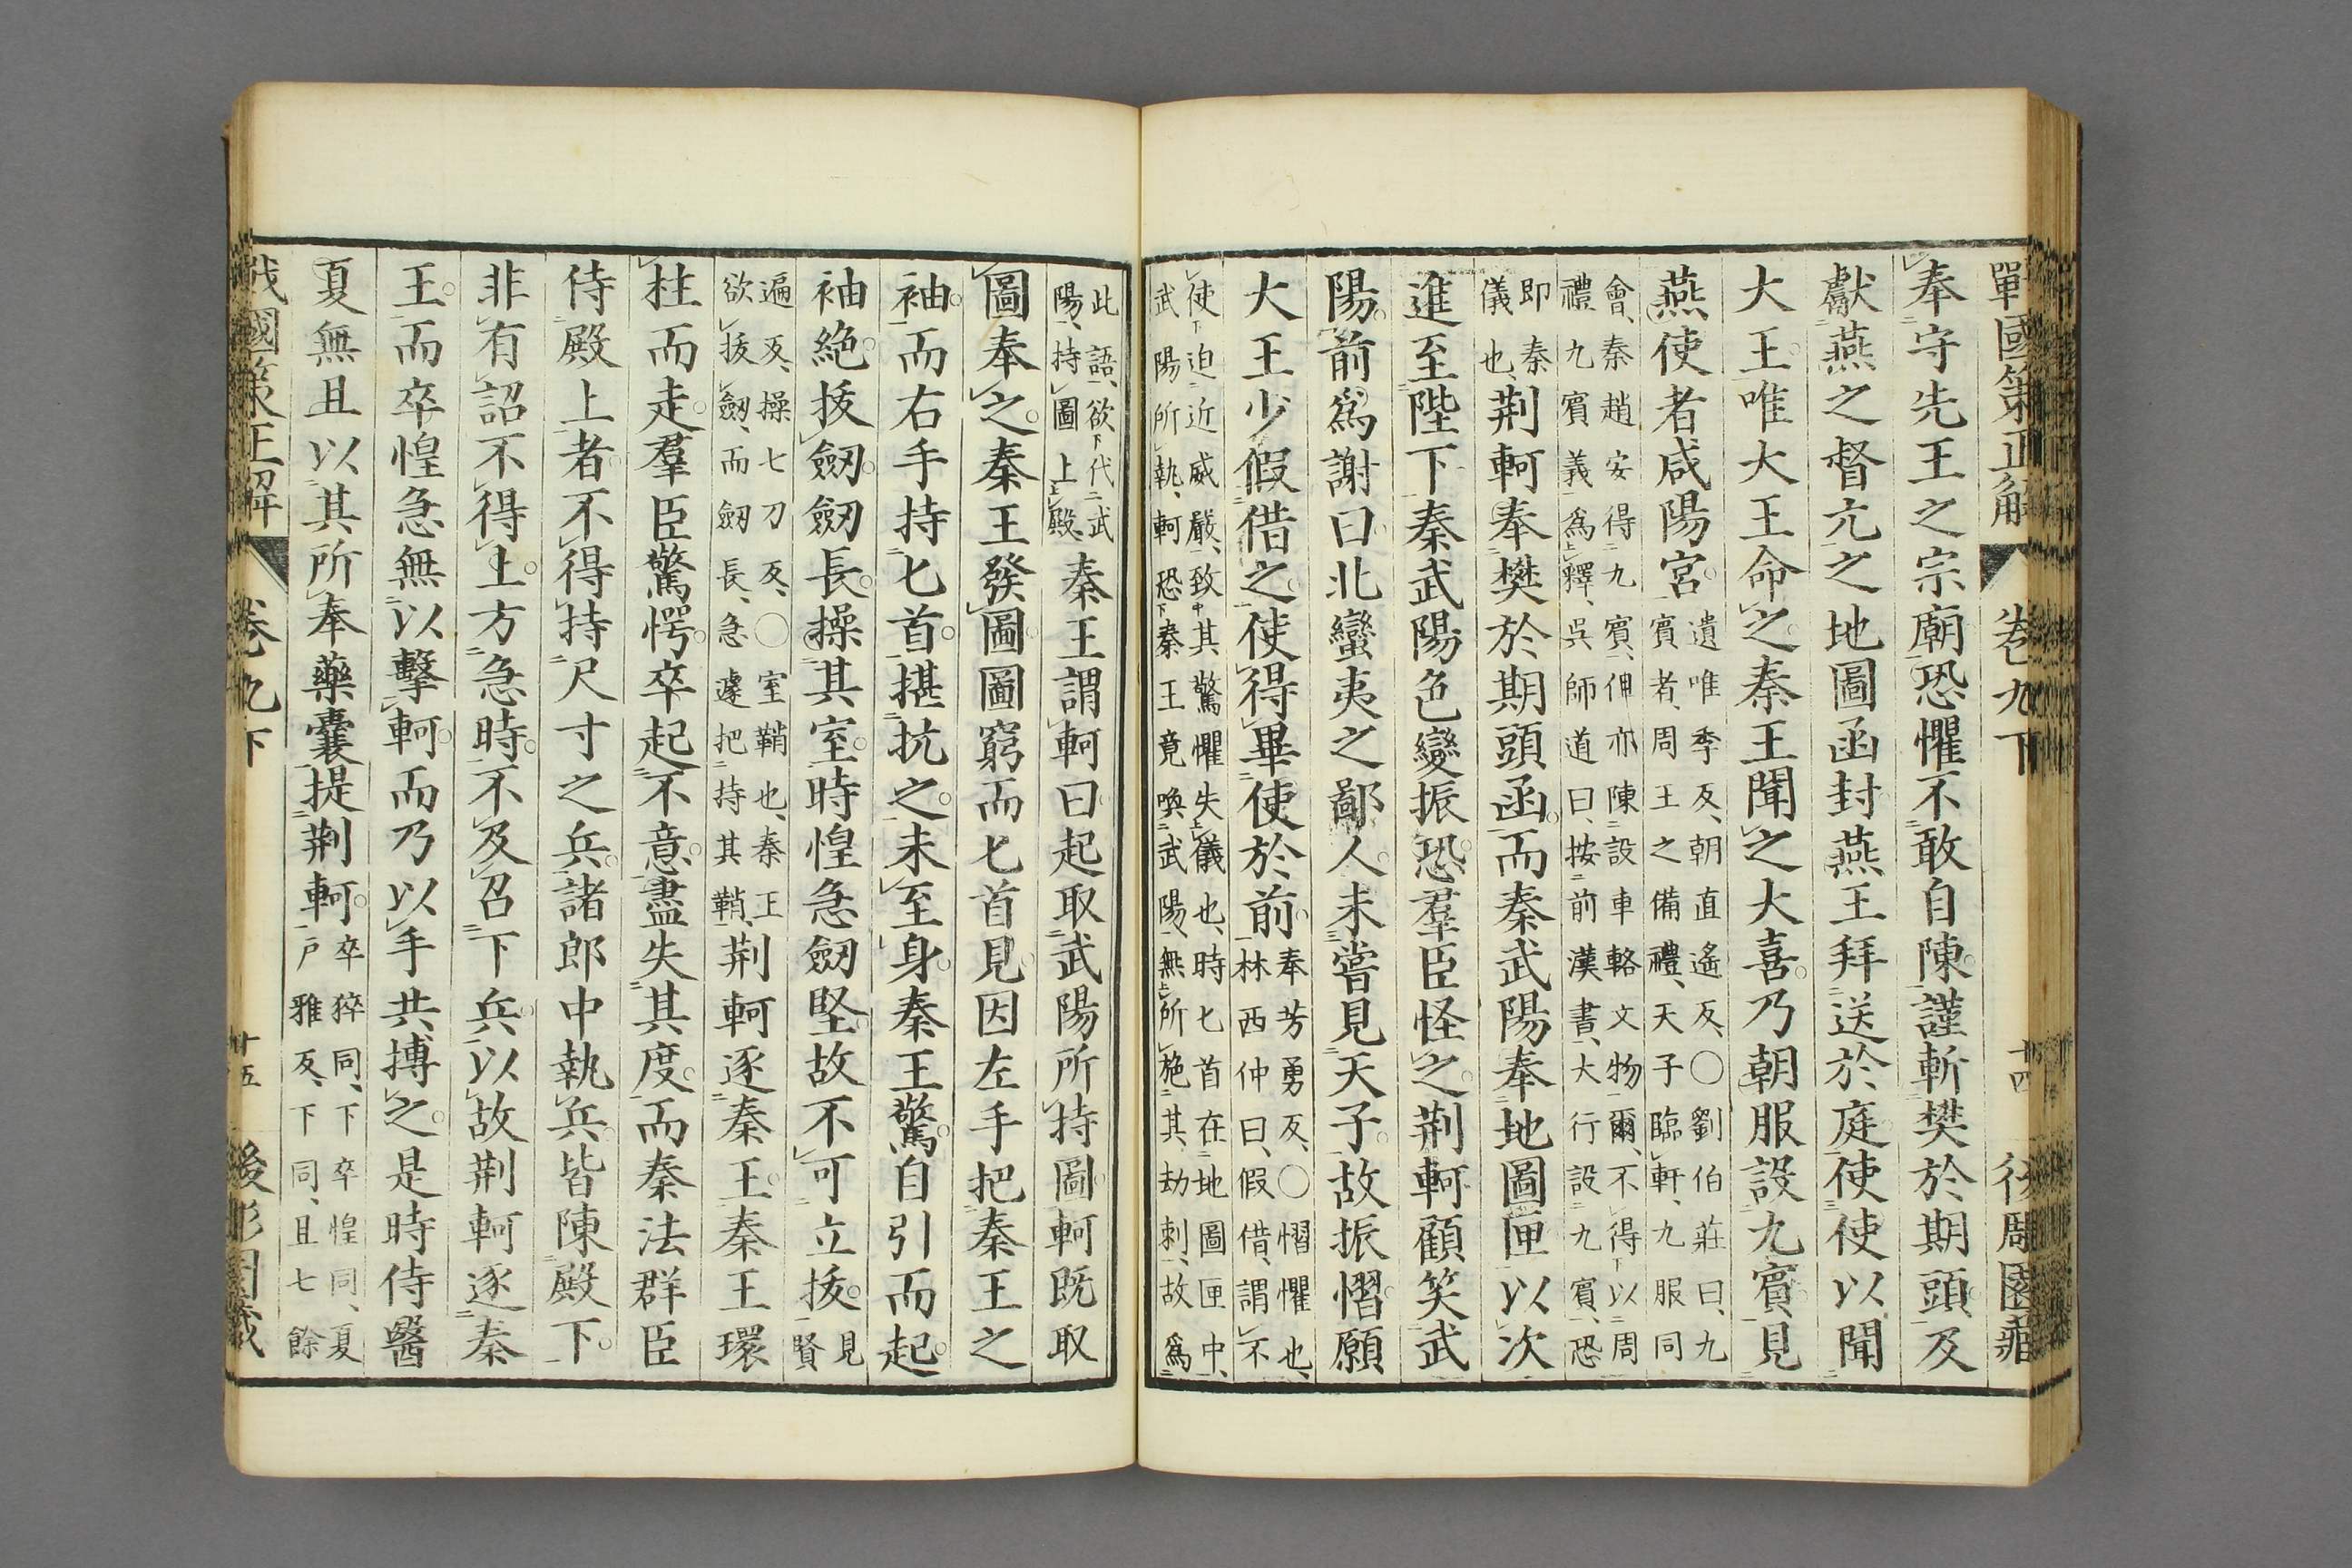 戰國策正解 卷九下 十四
奉守先王之宗廟恐懼不敢自陳謹斬樊於期頭及
獻燕之督亢之地圖函封燕王拜送於庭使使以聞
大王唯大王命之秦王聞之大喜乃朝服設九賓見
燕使者咸陽宮遺唯季反、朝直遙反、〇劉伯莊曰、九
賓者、周王之備禮、天子臨軒、九服同
會、秦趙安得九賓、伸亦陳設車輅文物爾、不得以周
禮九賓義爲釋、吳師道曰、按前漢書、大行設九賓、恐
即秦
儀也、荆軻奉樊於期頭函而秦武陽奉地圖匣以次
進至陛下秦武陽色變振恐羣臣怪之荆軻顧笑武
陽前爲謝曰北蠻夷之鄙人未嘗見天子故振慴願
大王少假借之使得畢使於前奉芳勇反、〇慴懼也、
林西仲曰、假借、謂不
使迫近威嚴、致其驚懼失儀也、時匕首在地圖匣中、
武陽所執、軻恐秦王竟喚武陽、無所施其劫刺、故爲
此語、欲代武
陽、持圖上殿、秦王謂軻曰起取武陽所持圖軻既取
圖奉之秦王發圖圖窮而匕首見因左手把秦王之
袖而右手持匕首揕抗之未至身秦王驚自引而起
袖絕拔劒劒長操其室時惶急劒堅故不可立拔見賢
遍反、操七刀反、〇室鞘也、秦王
欲拔劒、而劒長、急遽把持其鞘、荆軻逐秦王秦王環
柱而走羣臣驚愕卒起不意盡失其度而秦法群臣
侍殿上者不得持尺寸之兵諸郎中執兵皆陳殿下
非有詔不得上方急時不及召下兵以故荆軻逐秦
王而卒惶急無以擊軻而乃以手共搏之是時侍醫
夏無且以其所奉藥囊提荆軻卒猝同、下卒惶同、夏
戸雅反、下同、且七餘
戰國策正解 卷九下 十五